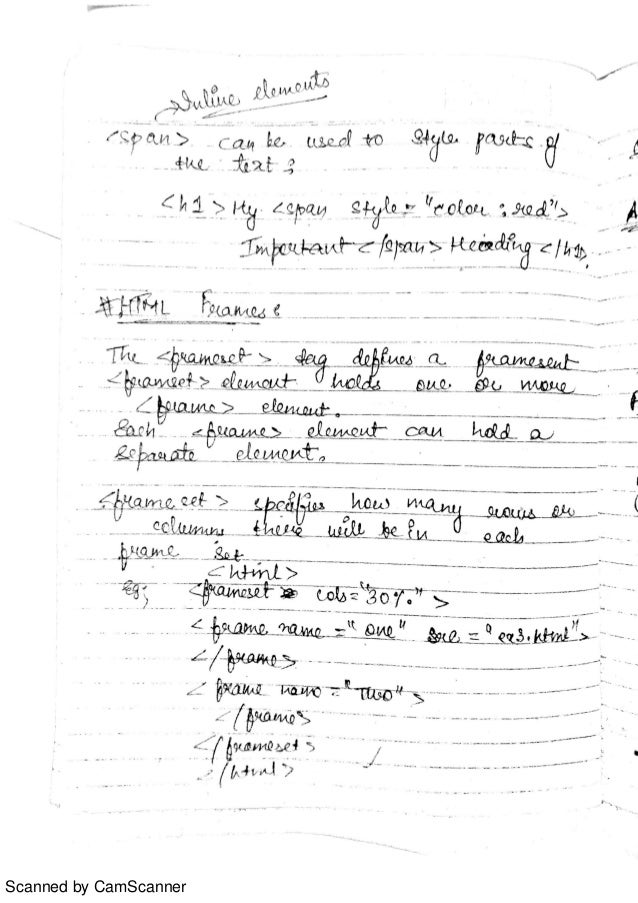 Inline elements
<span> can be used to style parts of
the text ;
<h1> My <span style= "color : red">
Important </span> Heading </h1>.
#HTML Frames :
The <frameset> tag defines a framesent
<frameset> element holds one or more
<frame> element.
Each <frame> element can hold a
separate element.
<frame set > specifies how many rows or
columns there will be in each
frame set
<html>
eg; <frameset cols="30%">
< frame name ="one" src = "ex3.html">
</frame>
< frame name = "Two">
</frame>
</frameset>
</html>
Scanned by CamScanner